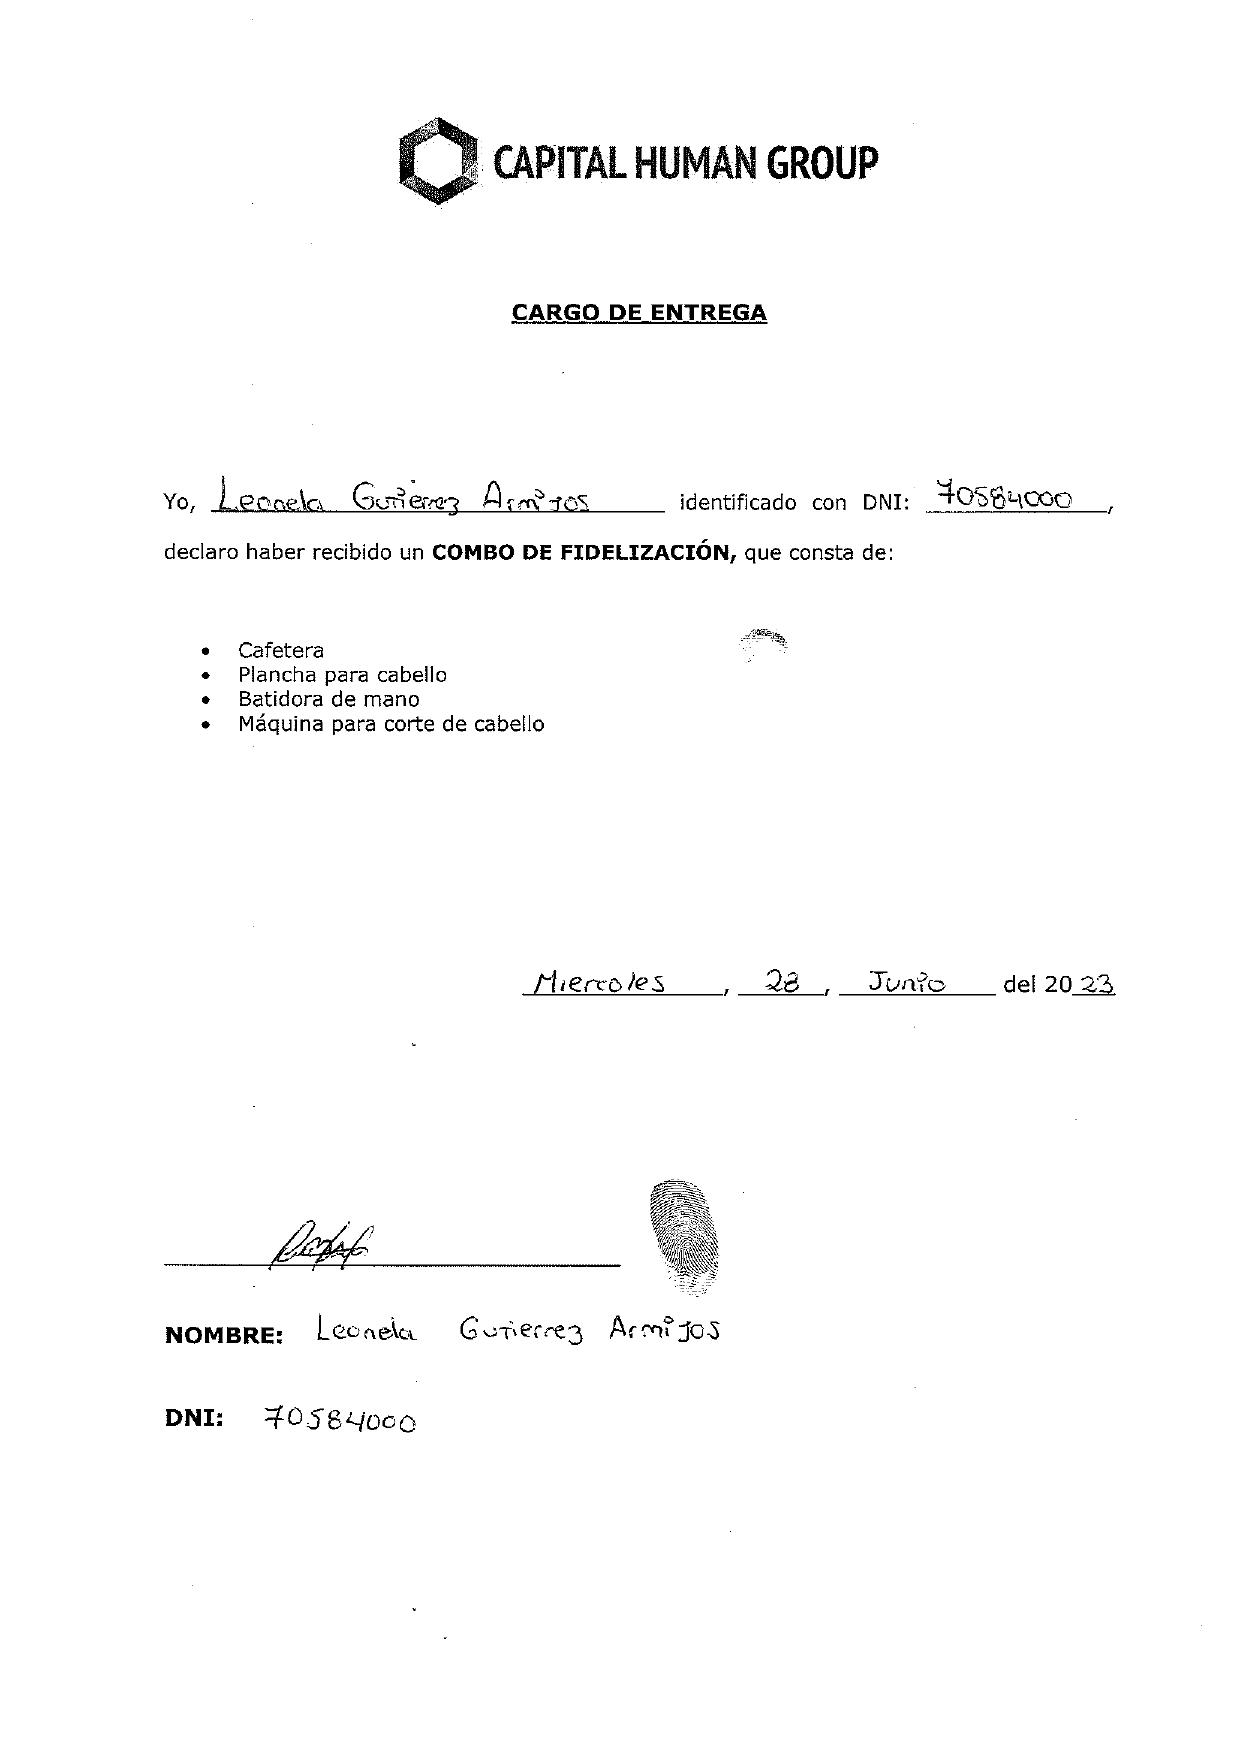 CAPITAL HUMAN GROUP
CARGO DE ENTREGA
Yo, Leonela Gutierrez Armijos identificado con DNI: 70584000,
declaro haber recibido un COMBO DE FIDELIZACIÓN, que consta de:
• Cafetera
• Plancha para cabello
• Batidora de mano
• Máquina para corte de cabello
Miercoles, 28, Junio del 2023
NOMBRE: Leonela Gutierrez Armijos
DNI: 70584000